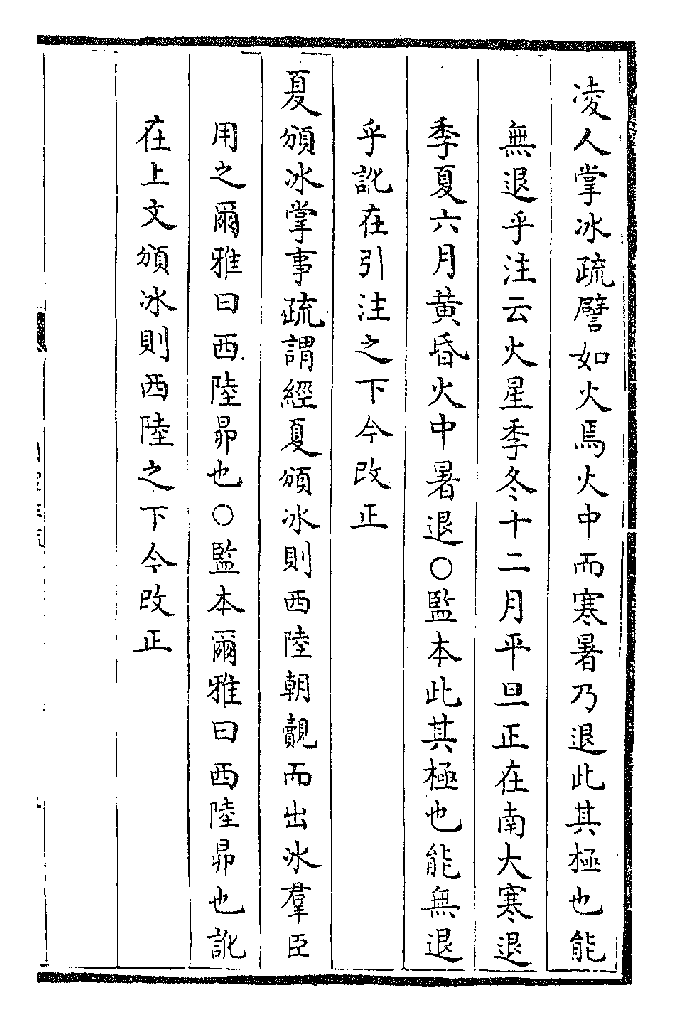 凌人掌冰疏譬如火焉火中而寒暑乃退此其極也能
無退乎注云火星季冬十二月平旦正在南大寒退
季夏六月黄昏火中暑退○監本此其極也能無退
乎訛在引注之下今改正
夏頒冰掌事疏謂經夏頒冰則西陸朝覿而出冰羣臣
用之爾雅曰西陸昴也○監本爾雅曰西陸昴也訛
在上文頒冰則西陸之下今改正